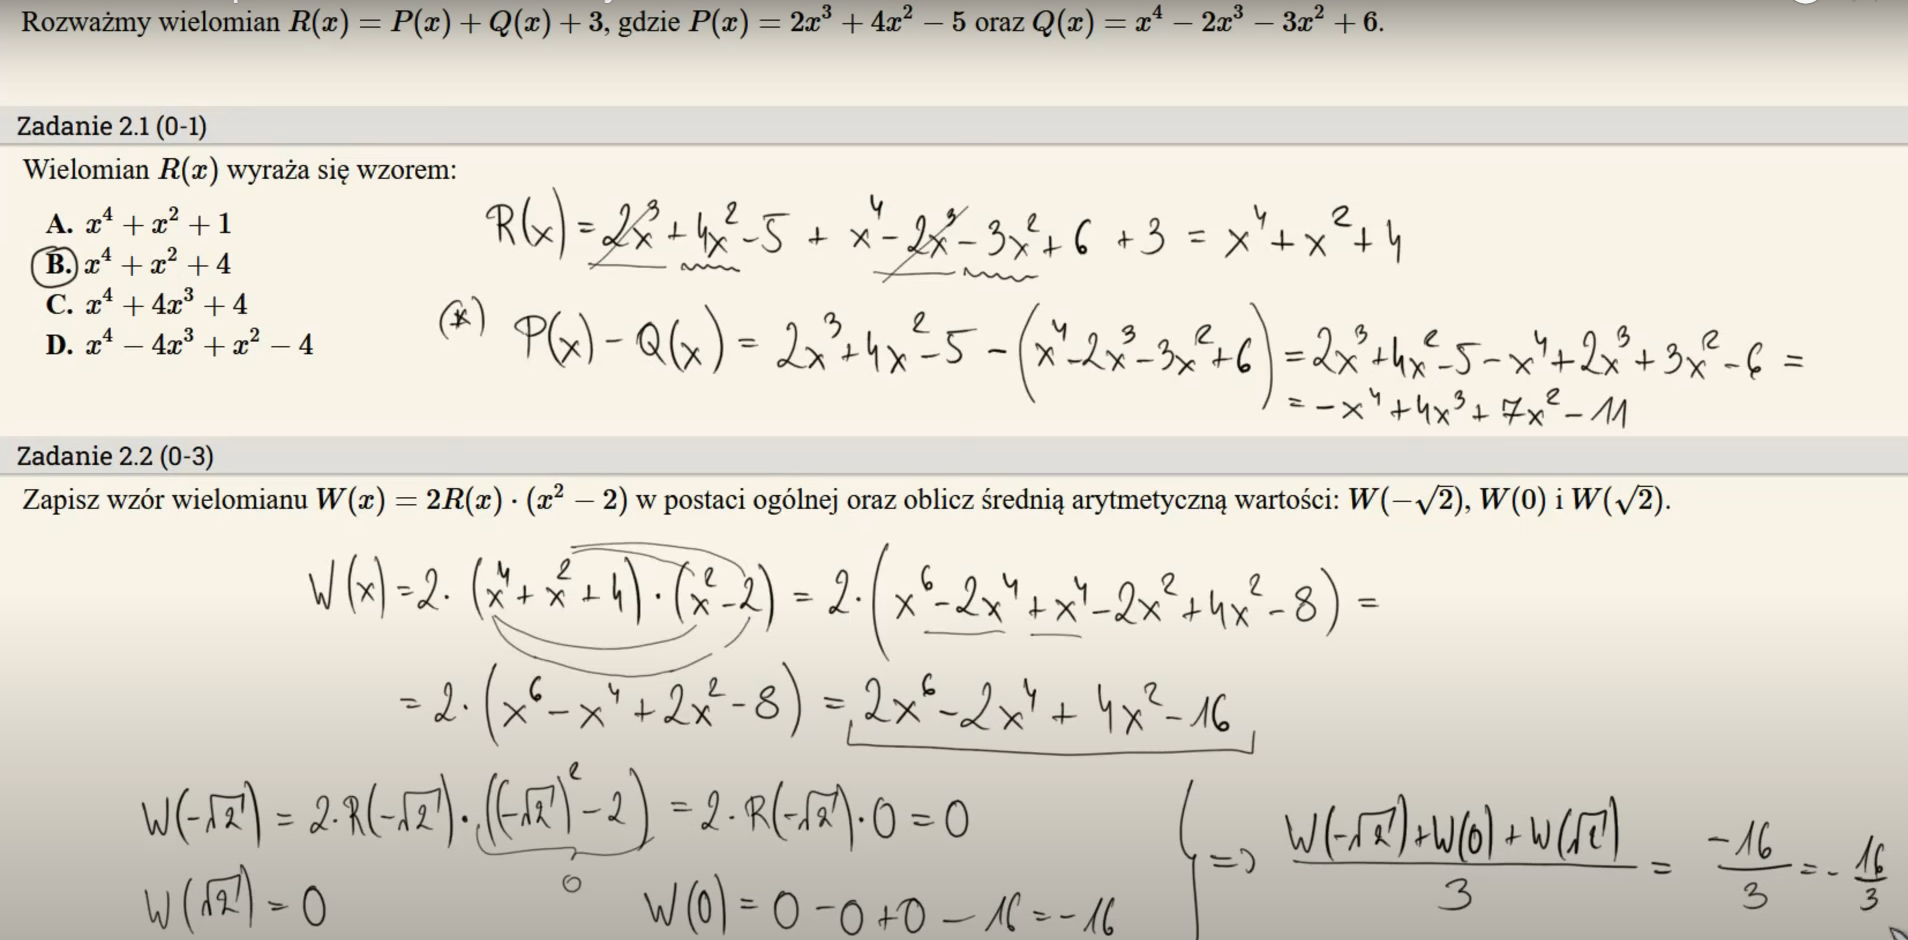 Rozważmy wielomian R(x) = P(x) + Q(x) + 3, gdzie P(x) = 2x³ + 4x² − 5 oraz Q(x) = x⁴ − 2x³ − 3x² + 6.
Zadanie 2.1 (0-1)
Wielomian R(x) wyraża się wzorem:
A. x⁴ + x² + 1
B. x⁴ + x² + 4
C. x⁴ + 4x³ + 4
D. x⁴ − 4x³ + x² − 4
R(x) = 2x³ + 4x² − 5 + x⁴ − 2x³ − 3x² + 6 + 3 = x⁴ + x² + 4
(*) P(x) − Q(x) = 2x³ + 4x² − 5 − (x⁴ − 2x³ − 3x² + 6) = 2x³ + 4x² − 5 − x⁴ + 2x³ + 3x² − 6 =
= −x⁴ + 4x³ + 7x² − 11
Zadanie 2.2 (0-3)
Zapisz wzór wielomianu W(x) = 2R(x) · (x² − 2) w postaci ogólnej oraz oblicz średnią arytmetyczną wartości: W(−√2), W(0) i W(√2).
W(x) = 2 · (x⁴ + x² + 4) · (x² − 2) = 2 · (x⁶ − 2x⁴ + x⁴ − 2x² + 4x² − 8) =
= 2 · (x⁶ − x⁴ + 2x² − 8) = 2x⁶ − 2x⁴ + 4x² − 16
W(−√2) = 2 · R(−√2) · ((−√2)² − 2) = 2 · R(−√2) · 0 = 0
0
W(√2) = 0
W(0) = 0 − 0 + 0 − 16 = −16
=> (W(−√2) + W(0) + W(√2))/3 = −16/3 = −16/3